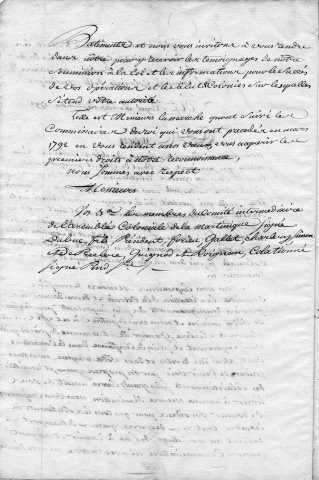 Batimentz et nous vous invitons à vous rendre
dans notre pour y recevoir les temoignages de notre
Soumission à la Loi et les informations pour le Succès
de vos opérations et les de Colonies sur les quelles
S'étend votre autorité.
Telle est Messieurs la marche quont suivi les
Commissaires du roi qui vous ont precedés en mars
1792 en vous rendant vous acquérir les
premiers droits à notre reconnoissance,
nous sommes avec respect
Messieurs
Vos &ca. Les membres du Comité intermédiaire
de l'assemblée Coloniale de la Martinique Signé
Dubuc fils President, Gallet, Charlery, Simon
de Guignod et Doignon, Colationné
Signé